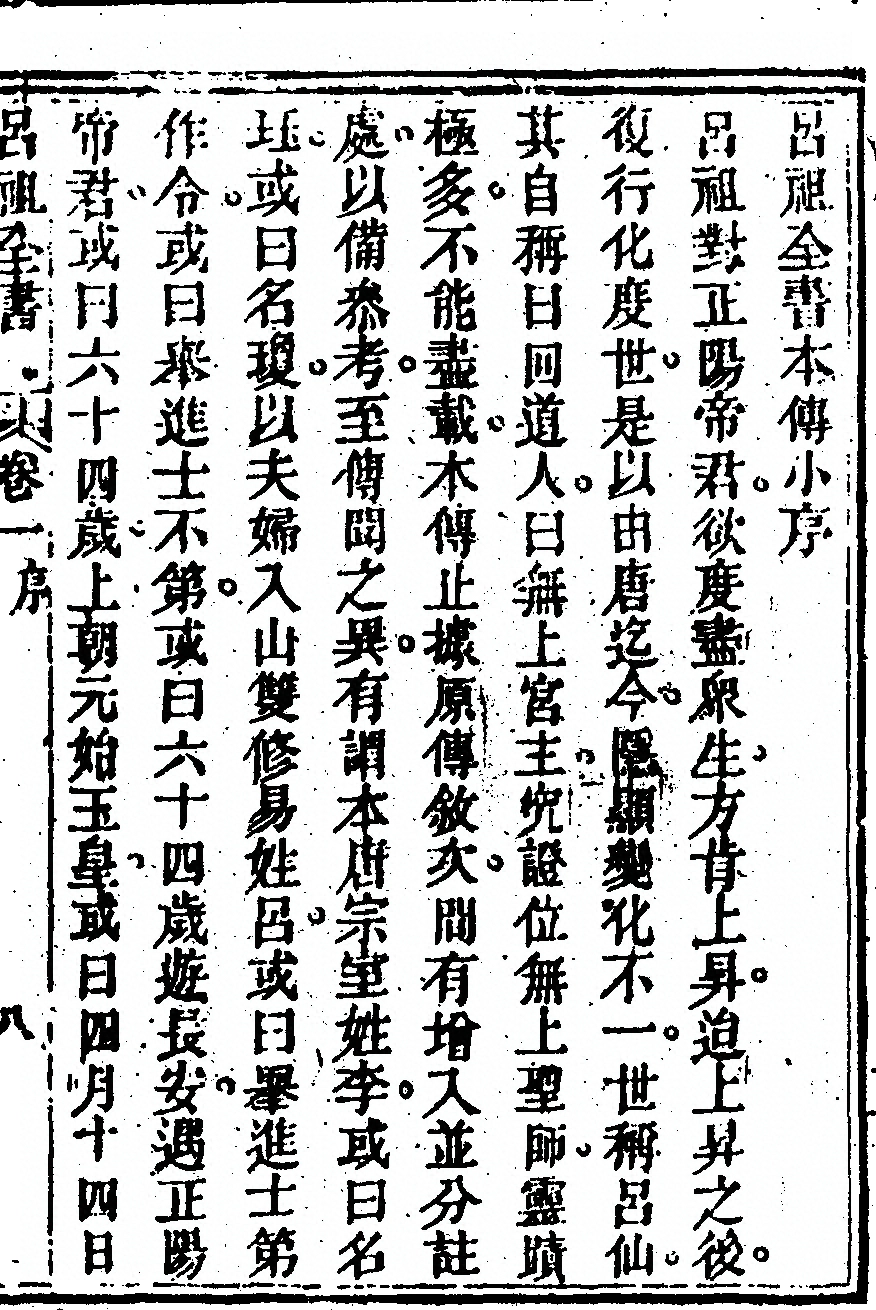 呂祖全書本傳小序
呂祖對正陽帝君。欲度盡衆生。方肯上昇。迨上昇之後。
復行化度世。是以由唐迄今。隱顯變化不一。世稱呂仙。
其自稱曰回道人。曰無上宮主。究證位無上聖師。靈蹟
極多。不能盡載。本傳止據原傳敘次。間有增入並分註
處。以備叅考。至傳聞之異。有謂本唐宗室姓李。或曰名
珏。或曰名瓊。以夫婦入山雙修易姓呂。或曰舉進士第
作令。或曰舉進士不第。或曰六十四歲遊長安。遇正陽
帝君。或曰六十四歲。上朝元始玉皇。或曰四月十四日
呂祖全書 卷一 序 八